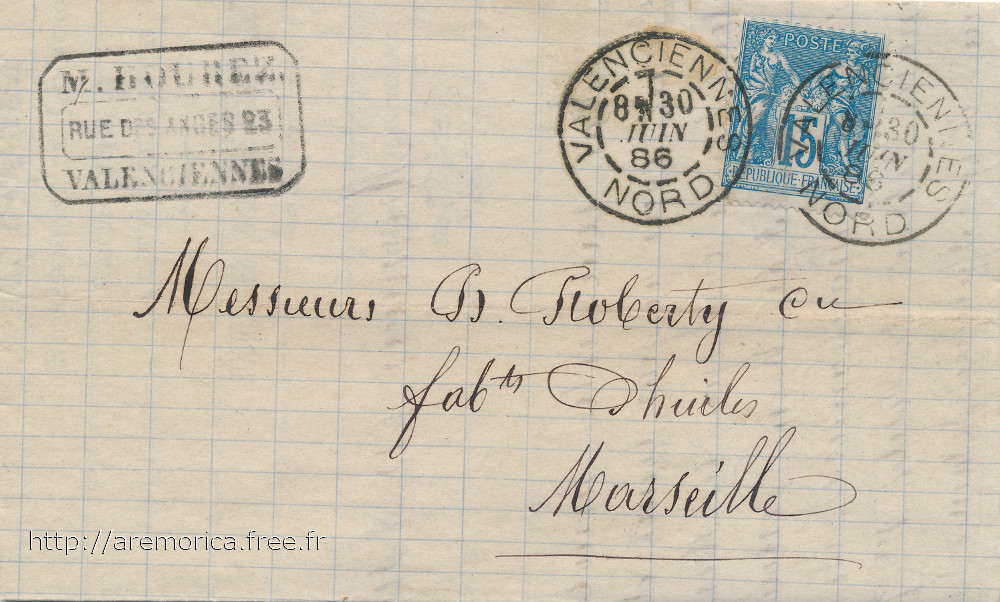 M. 
RUE DES ANGES 23
VALENCIENNES
VALENCIENNES
7
8 30
JUIN
86
NORD
POSTE
15
REPUBLIQUE FRANÇAISE
VALENCIENNES
8 30
JUIN
86
NORD
Messieurs B. Roberty
fabts d'huiles
Marseille
http://aremorica.free.fr